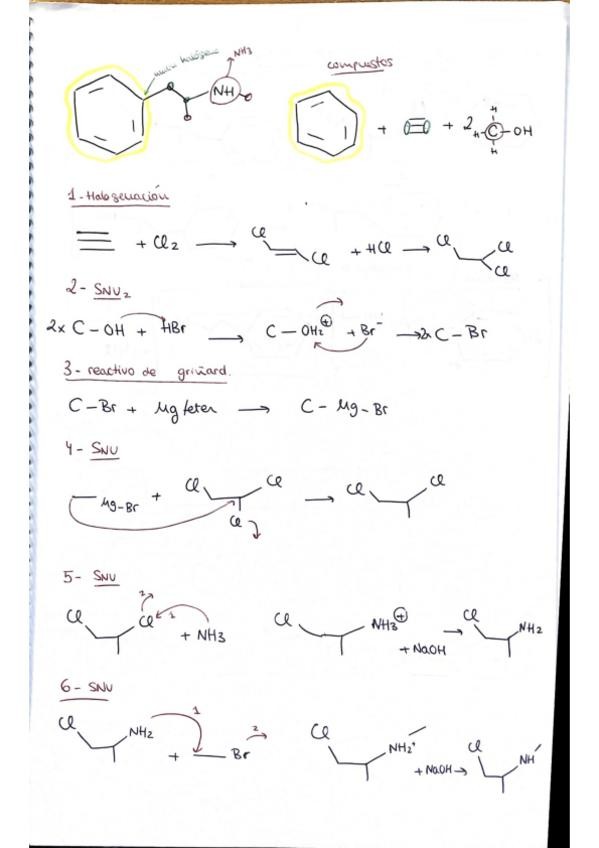 NH3
NH
compuestos
+ + 2 H C - OH
H
H
1 - Halogenación
+ Cl2 → Cl Cl + HCl → Cl Cl Cl
2 - SNU2
2x C - OH + HBr → C - OH2 ⊕ + Br⁻ → 2x C - Br
3 - reactivo de griñard.
C - Br + Mg/eter → C - Mg - Br
4 - SNU
Mg-Br + Cl Cl Cl → Cl Cl
5 - SNU
Cl Cl 2 1 + NH3 Cl NH3 ⊕ + NaOH → Cl NH2
6 - SNU
Cl NH2 1 + Br 2 Cl NH2+ + NaOH → Cl NH